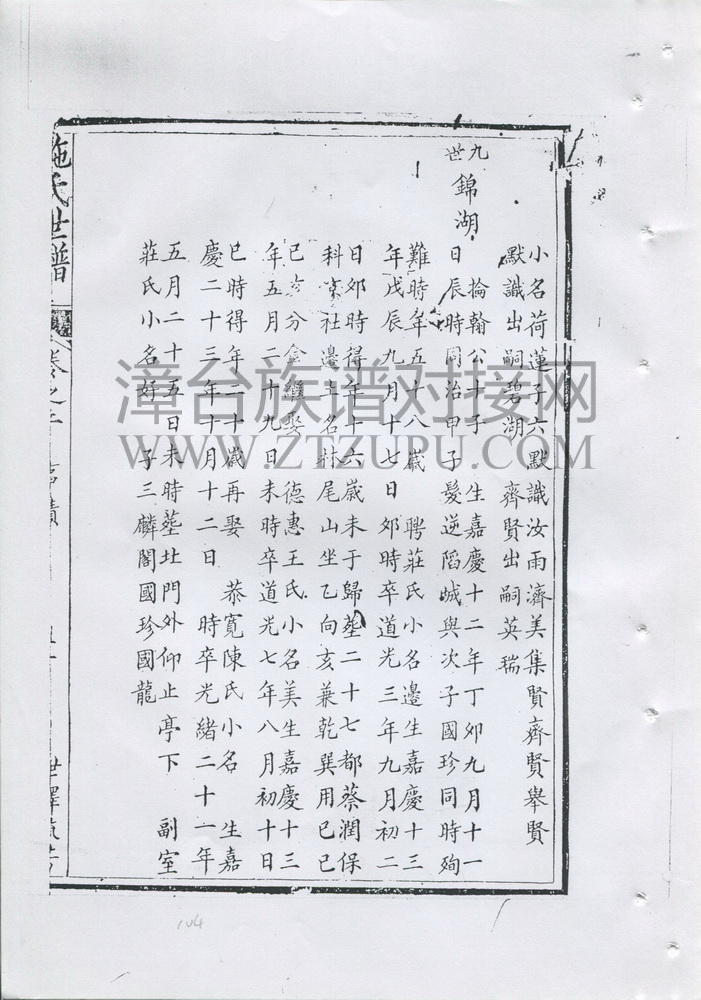 小名荷蓮子六默識汝雨濟美集賢齊賢舉賢
默識出嗣碧湖 齊賢出嗣英瑞
九世
錦湖
掄翰公十子 生嘉慶十二年丁卯九月十一
日辰時同治甲子髮逆陷城與次子國珍同時殉
難時年五十八歲 聘莊氏小名邊生嘉慶十三
年戊辰九月十七日郊時卒道光三年九月初二
日郊時得年十六歲未于歸塟二十七都蔡潤保
科 社邊土名林尾山坐乙向亥兼乾巽用己巳
己亥分金繼娶 德惠王氏小名美生嘉慶十三
年五月二十九日未時卒道光七年八月初十日
巳時得年二十歲再娶 恭寬陳氏小名 生嘉
慶二十三年十月十二日 時卒光緒二十一年
五月二十五日未時塟北門外仰止亭下 副室
莊氏小名好 子三麟閣國珍國龍
施氏世譜
卷之
漳台族谱对接网
WWW.ZTZUPU.COM
104